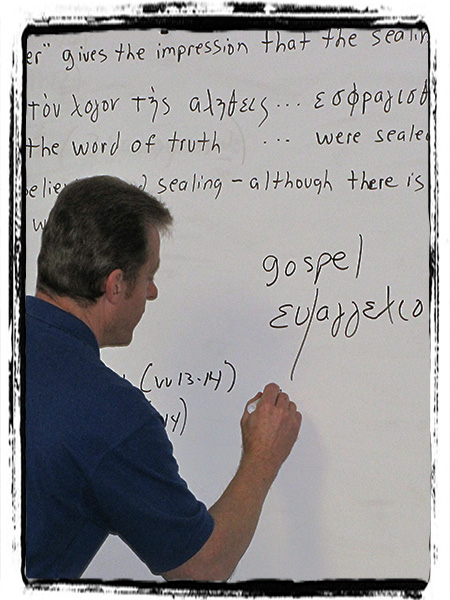 er" gives the impression that the sealin
τὸν λογον τῆς αληθεις... εσφραγισθ
the word of truth ... were seale
elie d sealing – although there is
w
gospel
ευ/αγγελιο
(vv 13-14)
14)